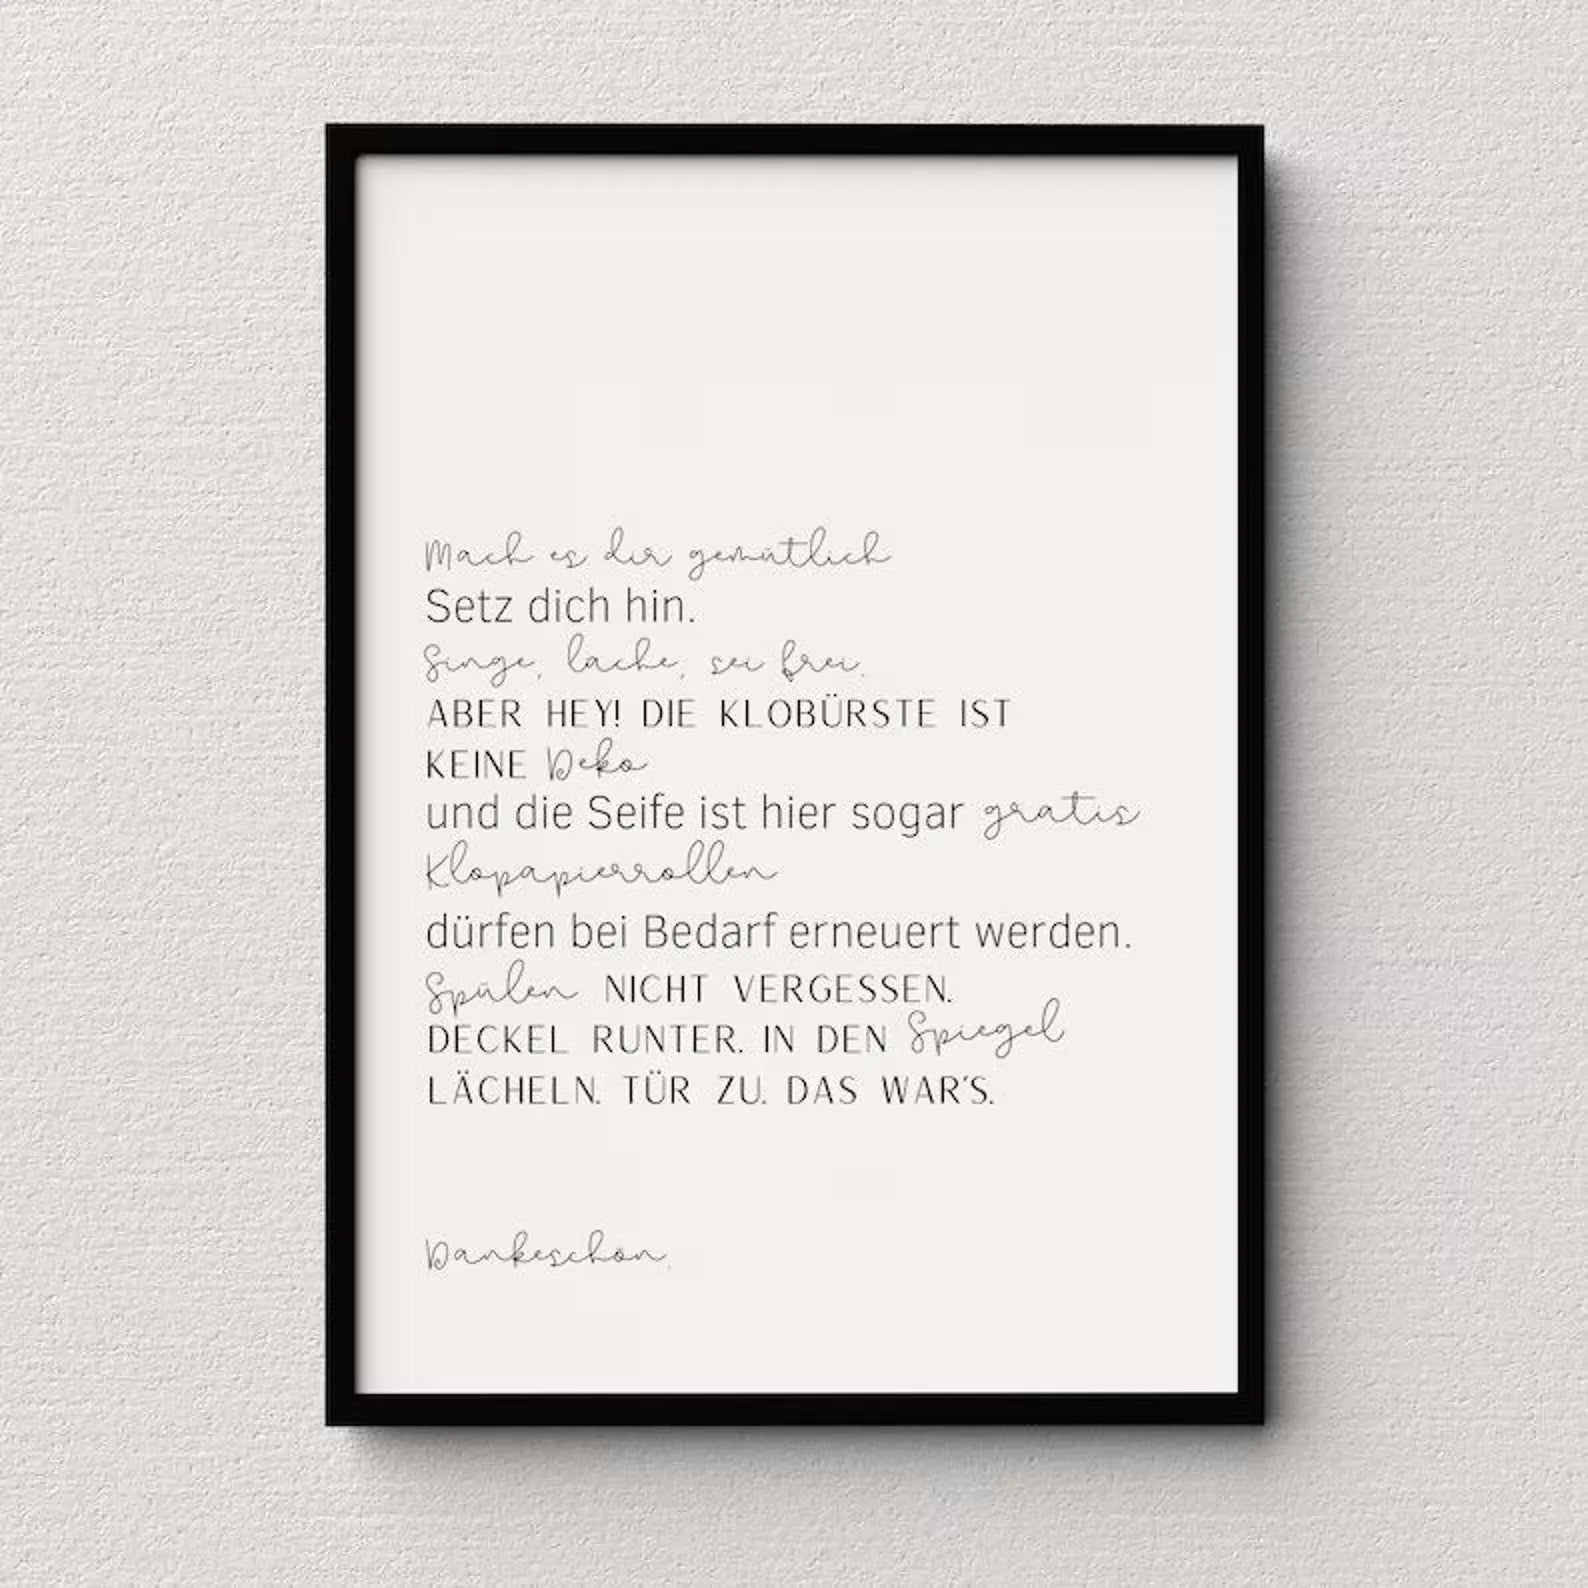 Mach es dir gemütlich
Setz dich hin.
Singe, lache, sei frei.
ABER HEY! DIE KLOBÜRSTE IST
KEINE Deko
und die Seife ist hier sogar gratis
Klopapierrollen
dürfen bei Bedarf erneuert werden.
Spülen NICHT VERGESSEN.
DECKEL RUNTER. IN DEN Spiegel
LÄCHELN. TÜR ZU. DAS WAR'S.
Dankeschön.